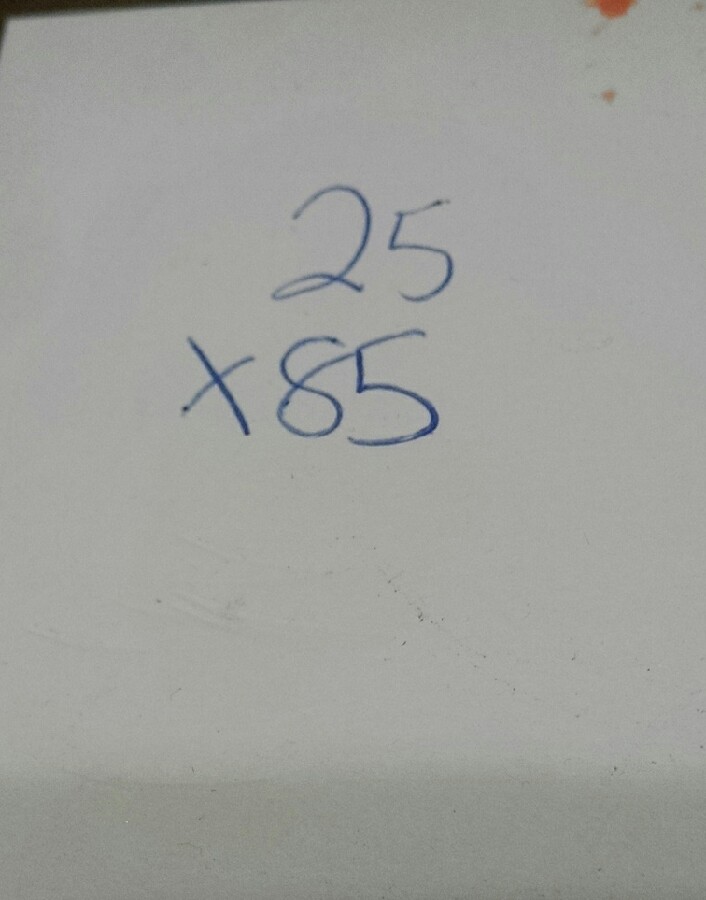 25
x85